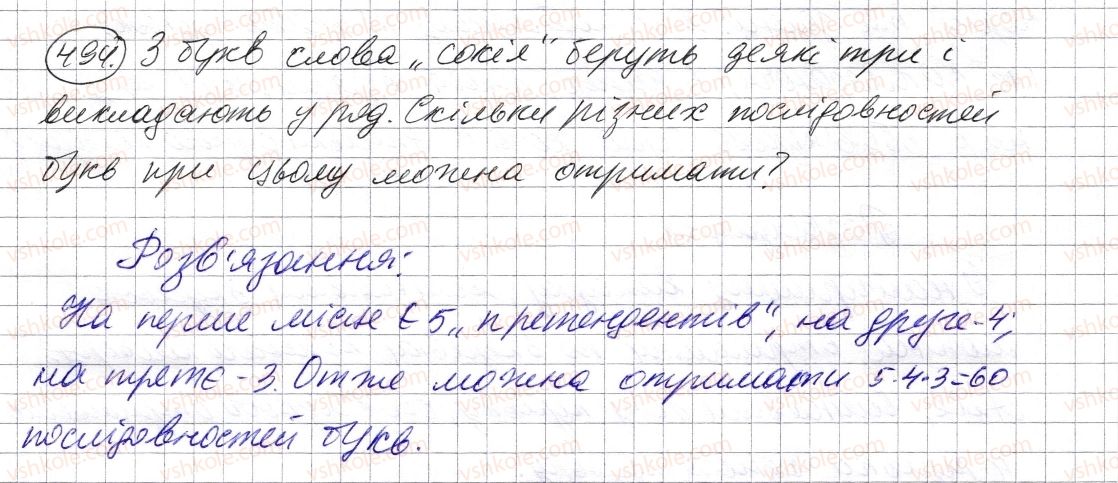 494. З букв слова „сокіл" беруть деякі три і
викладають у ряд. Скільки різних послідовностей
букв при цьому можна отримати?
Розв'язання:
На перше місце є 5 „претендентів", на друге - 4,
на третє - 3. Отже можна отримати 5·4·3=60
послідовностей букв.